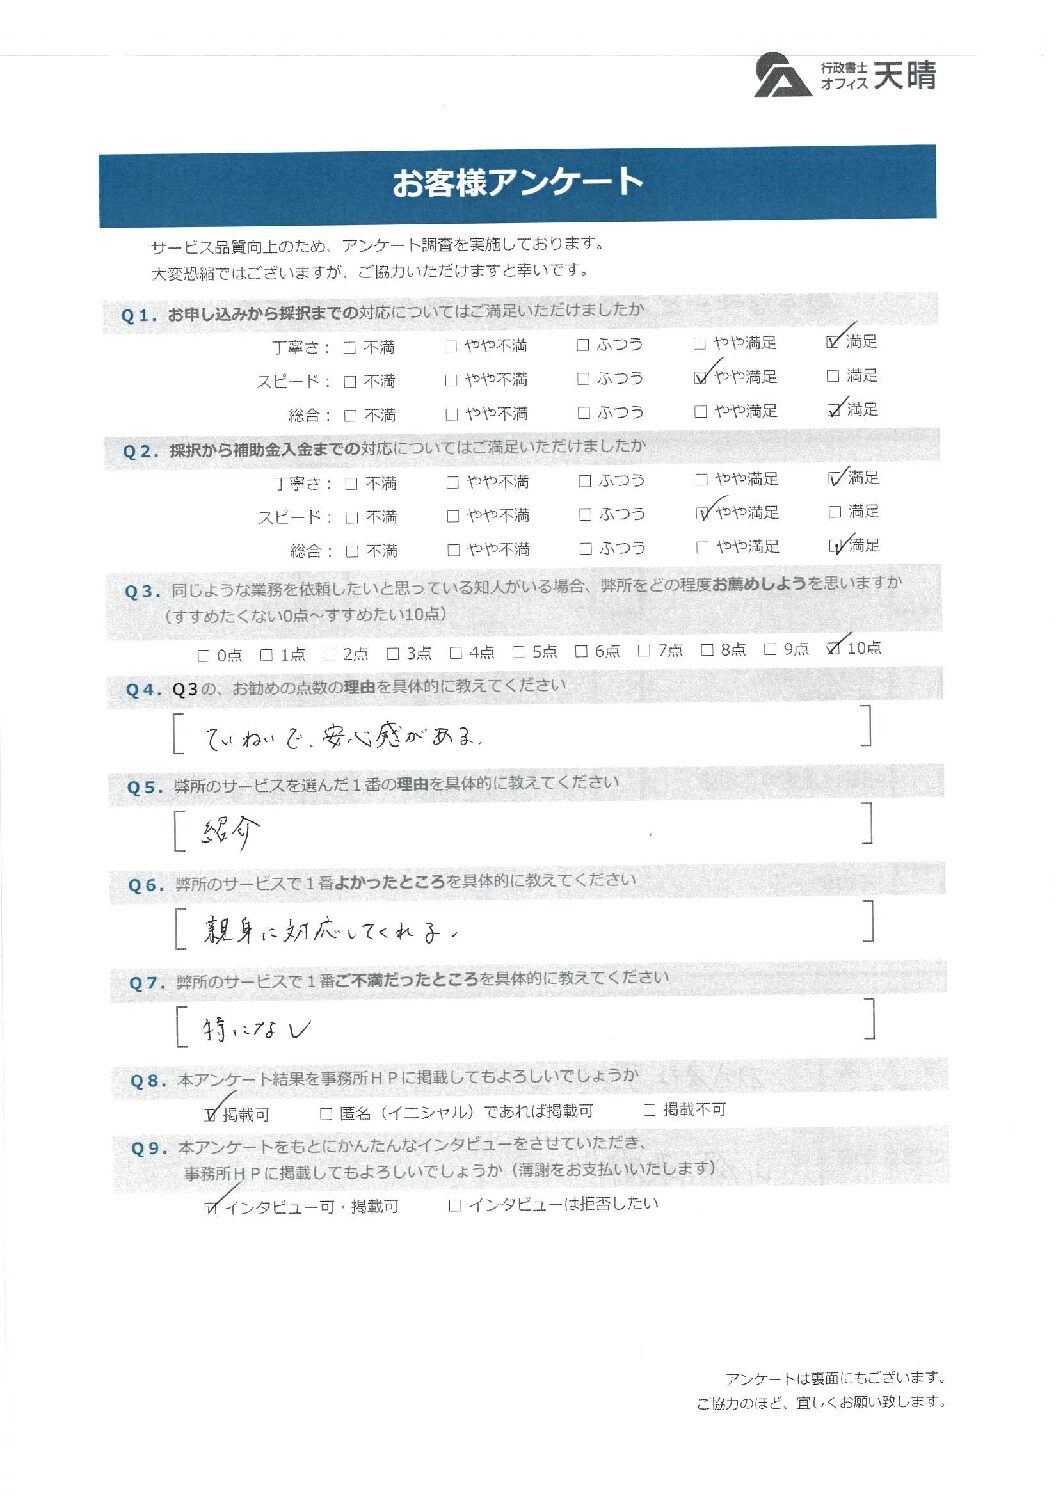 行政書士
オフィス 天晴
お客様アンケート
サービス品質向上のため、アンケート調査を実施しております。
大変恐縮ではございますが、ご協力いただけますと幸いです。
Q1. お申し込みから採択までの対応についてはご満足いただけましたか
丁寧さ： □ 不満 □ やや不満 □ ふつう □ やや満足 ☑ 満足
スピード： □ 不満 □ やや不満 □ ふつう ☑ やや満足 □ 満足
総合： □ 不満 □ やや不満 □ ふつう □ やや満足 ☑ 満足
Q2. 採択から補助金入金までの対応についてはご満足いただけましたか
丁寧さ： □ 不満 □ やや不満 □ ふつう □ やや満足 ☑ 満足
スピード： □ 不満 □ やや不満 □ ふつう ☑ やや満足 □ 満足
総合： □ 不満 □ やや不満 □ ふつう □ やや満足 ☑ 満足
Q3. 同じような業務を依頼したいと思っている知人がいる場合、弊所をどの程度お薦めしようを思いますか
（すすめたくない0点～すすめたい10点）
□ 0点 □ 1点 □ 2点 □ 3点 □ 4点 □ 5点 □ 6点 □ 7点 □ 8点 □ 9点 ☑ 10点
Q4. Q3の、お勧めの点数の理由を具体的に教えてください
ていねいで、安心感がある。
Q5. 弊所のサービスを選んだ１番の理由を具体的に教えてください
紹介
Q6. 弊所のサービスで１番よかったところを具体的に教えてください
親身に対応してくれる。
Q7. 弊所のサービスで１番ご不満だったところを具体的に教えてください
特になし
Q8. 本アンケート結果を事務所ＨＰに掲載してもよろしいでしょうか
☑ 掲載可 □ 匿名（イニシャル）であれば掲載可 □ 掲載不可
Q9. 本アンケートをもとにかんたんなインタビューをさせていただき、
事務所ＨＰに掲載してもよろしいでしょうか（薄謝をお支払いいたします）
☑ インタビュー可・掲載可 □ インタビューは拒否したい
アンケートは裏面にもございます。
ご協力のほど、宜しくお願い致します。